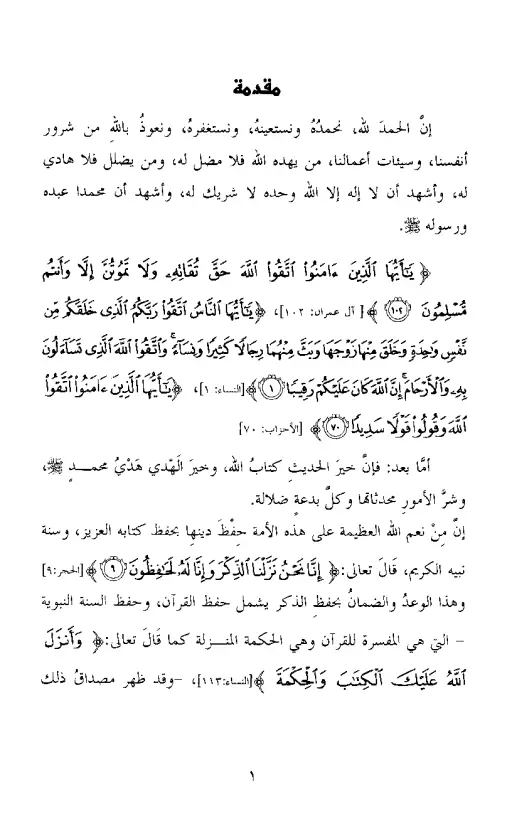 مقدمة
إنَّ الحمدَ لله، نحمدُهُ ونستعينهُ، ونستغفرهُ، ونعوذُ باللهِ من شرور
أنفسنا، وسيئات أعمالنا، من يهده الله فلا مضل له، ومن يضلل فلا هادي
له، وأشهد أن لا إله إلا الله وحده لا شريك له، وأشهد أن محمدا عبده
ورسوله ﷺ.
﴿ يَٰٓأَيُّهَا ٱلَّذِينَ ءَامَنُوا۟ ٱتَّقُوا۟ ٱللَّهَ حَقَّ تُقَاتِهِۦ وَلَا تَمُوتُنَّ إِلَّا وَأَنتُم
مُّسْلِمُونَ ۝١٠٢ ﴾[آل عمران: ١٠٢]، ﴿يَٰٓأَيُّهَا ٱلنَّاسُ ٱتَّقُوا۟ رَبَّكُمُ ٱلَّذِى خَلَقَكُم مِّن
نَّفْسٍ وَٰحِدَةٍ وَخَلَقَ مِنْهَا زَوْجَهَا وَبَثَّ مِنْهُمَا رِجَالًا كَثِيرًا وَنِسَآءً ۚ وَٱتَّقُوا۟ ٱللَّهَ ٱلَّذِى تَسَآءَلُونَ
بِهِۦ وَٱلْأَرْحَامَ ۚ إِنَّ ٱللَّهَ كَانَ عَلَيْكُمْ رَقِيبًا ۝١ ﴾[النساء: ١]، ﴿يَٰٓأَيُّهَا ٱلَّذِينَ ءَامَنُوا۟ ٱتَّقُوا۟
ٱللَّهَ وَقُولُوا۟ قَوْلًا سَدِيدًا ۝٧٠ ﴾ [الأحزاب: ٧٠]
أمَّا بعد: فإنَّ خيرَ الحديثِ كتابُ الله، وخيرَ الهَدْي هَدْيُ محمدٍ ﷺ،
وشرُّ الأمورِ محدثاتها وكلَّ بدعةٍ ضلالة.
إنَّ مِنْ نعم الله العظيمة على هذه الأمة حِفْظَ دينها بحفظ كتابه العزيز، وسنة
نبيه الكريم، قالَ تعالى:﴿ إِنَّا نَحْنُ نَزَّلْنَا ٱلذِّكْرَ وَإِنَّا لَهُۥ لَحَٰفِظُونَ ۝٩ ﴾[الحجر:٩]
وهذا الوعدُ والضمانُ بحفظِ الذكر يشمل حفظ القرآن، وحفظ السنة النبوية
– التي هي المفسرة للقرآن وهي الحكمة المنـزلة كما قالَ تعالى:﴿ وَأَنزَلَ
ٱللَّهُ عَلَيْكَ ٱلْكِتَٰبَ وَٱلْحِكْمَةَ ﴾[النساء:١١٣]، –وقد ظهر مصداقُ ذلك
١